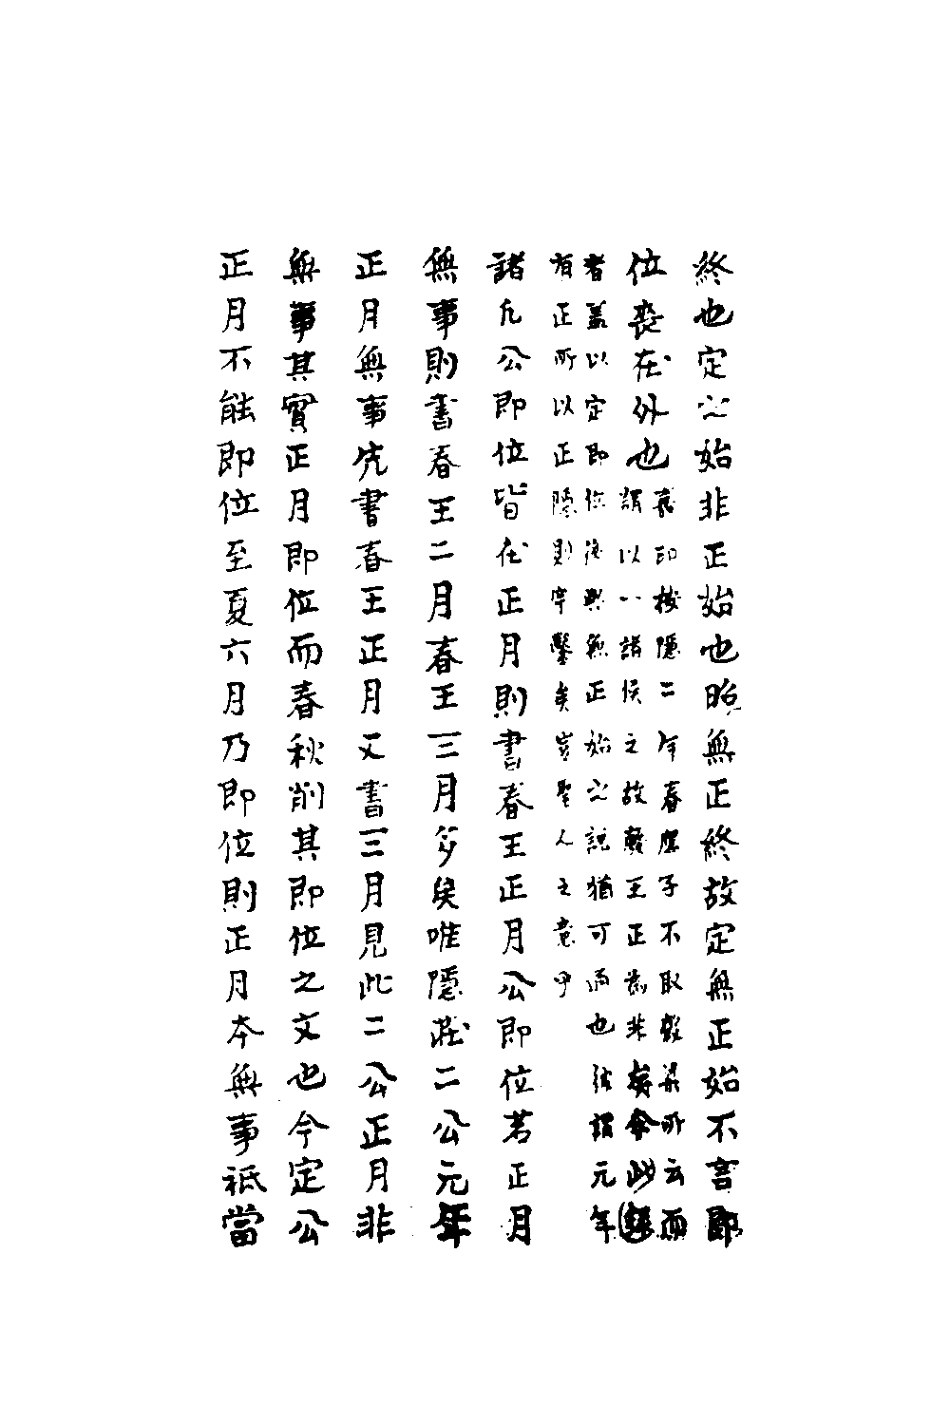 終也定之始非正始也昭無正終故定無正始不言即
位喪在外也
嘉卽按隱二年春應子不取穀梁所云而
謂以八諸侯之故難王正為非矣今此
者蓋以定即位後與無正始之說猶可通也謂元年
有正所以正隱則穿鑿矣豈聖人之意乎
諸凡公即位皆在正月則書春王正月公即位若正月
無事則書春王二月春王三月多矣唯隱莊二公元年
正月無事先書春王正月又書三月見此二公正月非
無事其實正月即位而春秋削其即位之文也今定公
正月不能即位至夏六月乃即位則正月本無事祗當